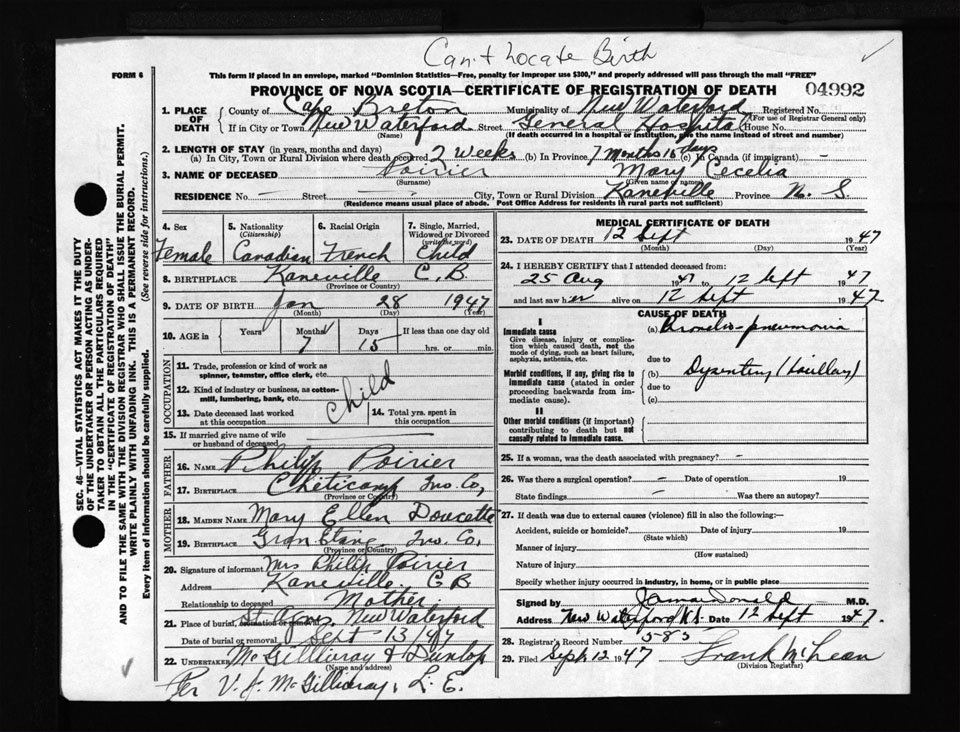 Can't Locate Birth
FORM 6
This form if placed in an envelope, marked "Dominion Statistics—Free, penalty for improper use $300," and properly addressed will pass through the mail "FREE"
PROVINCE OF NOVA SCOTIA—CERTIFICATE OF REGISTRATION OF DEATH 04992
1. PLACE OF DEATH County of Cape Breton Municipality of New Waterford Registered No.
(For use of Registrar General only)
If in City or Town New Waterford Street General Hospital House No.
(Name) (If death occurred in a hospital or institution, give the name instead of street and number)
2. LENGTH OF STAY (in years, months and days)
(a) In City, Town or Rural Division where death occurred 2 Weeks (b) In Province 7 Months 15 days (c) In Canada (if immigrant) —
3. NAME OF DECEASED Poirier Mary Cecelia
(Surname) (Given name or names)
RESIDENCE No. — Street — City, Town or Rural Division Kaneville Province N. S.
(Residence means usual place of abode. Post Office Address for residents in rural parts not sufficient)
4. Sex Female
5. Nationality (Citizenship) Canadian
6. Racial Origin French
7. Single, Married, Widowed or Divorced (write the word) Child
8. BIRTHPLACE Kaneville C. B.
(Province or Country)
9. DATE OF BIRTH Jan 28 1947
(Month) (Day) (Year)
10. AGE in Years Months 7 Days 15 If less than one day old
hrs. or min.
OCCUPATION
11. Trade, profession or kind of work as
spinner, teamster, office clerk, etc.
12. Kind of industry or business, as cotton-
mill, lumbering, bank, etc.
Child
13. Date deceased last worked
at this occupation
14. Total yrs. spent in
this occupation
15. If married give name of wife
or husband of deceased
FATHER
16. NAME Philip Poirier
17. BIRTHPLACE Cheticamp Inv. Co,
(Province or Country)
MOTHER
18. MAIDEN NAME Mary Ellen Doucette
19. BIRTHPLACE Gran Etang Inv. Co,
(Province or Country)
20. Signature of informant Mrs Philip Poirier
Address Kaneville CB
Relationship to deceased Mother
21. Place of burial, cremation or removal St Agnes, New Waterford
Date of burial or removal Sept 13/47
22. UNDERTAKER McGillivray & Dunlop
(Name and address)
Per V. J. McGillivray, L. E.
MEDICAL CERTIFICATE OF DEATH
23. DATE OF DEATH 12 Sept 1947
(Month) (Day) (Year)
24. I HEREBY CERTIFY that I attended deceased from:
25 Aug 1947 to 12 Sept 1947
and last saw her alive on 12 Sept 1947
CAUSE OF DEATH
I
Immediate cause
Give disease, injury or complica-
tion which caused death, not the
mode of dying, such as heart failure,
asphyxia, asthenia, etc.
(a) Broncho-pneumonia
due to
Morbid conditions, if any, giving rise to
immediate cause (stated in order
proceeding backwards from im-
mediate cause).
(b) Dysentery (bacillary)
due to
(c)
II
Other morbid conditions (if important)
contributing to death but not
causally related to immediate cause.
25. If a woman, was the death associated with pregnancy? —
26. Was there a surgical operation? — Date of operation 19
State findings — Was there an autopsy?
27. If death was due to external causes (violence) fill in also the following:
Accident, suicide or homicide? Date of injury 19
(State which)
Manner of injury
(How sustained)
Nature of injury
Specify whether injury occurred in industry, in home, or in public place
Signed by M.D.
Address New Waterford NS. Date 12 Sept 1947.
28. Registrar's Record Number 585
29. Filed Sept 12 1947 Frank McLean
(Division Registrar)
SEC. 46—VITAL STATISTICS ACT MAKES IT THE DUTY
OF THE UNDERTAKER OR PERSON ACTING AS UNDER-
TAKER TO OBTAIN ALL THE PARTICULARS REQUIRED
IN THE "CERTIFICATE OF REGISTRATION OF DEATH"
AND TO FILE THE SAME WITH THE DIVISION REGISTRAR WHO SHALL ISSUE THE BURIAL PERMIT.
WRITE PLAINLY WITH UNFADING INK. THIS IS A PERMANENT RECORD.
Every item of information should be carefully supplied. (See reverse side for instructions.)